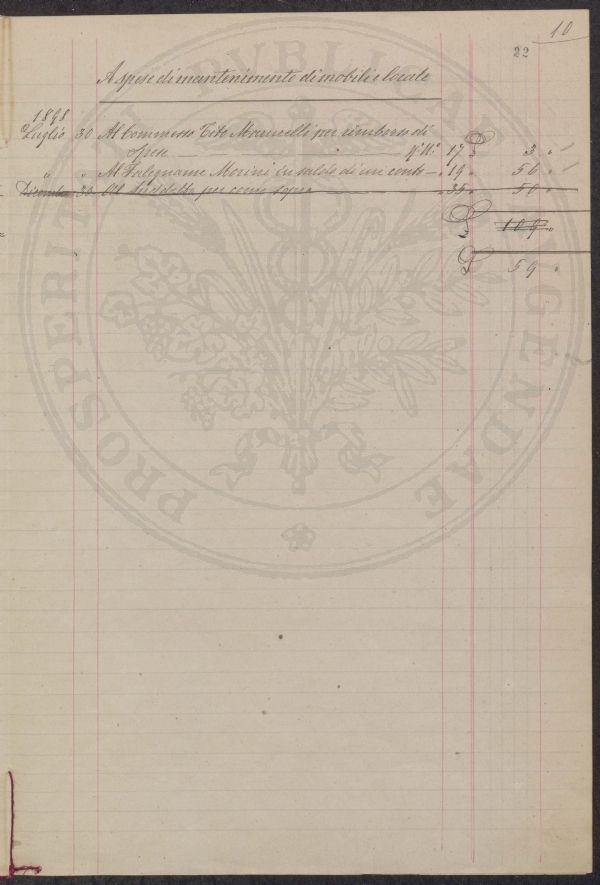 10
22
A spese di mantenimento di mobili e locale
1898
Luglio 30 Al Commesso Tito Marucelli per rimborso di
spese M.º N.º 17 £ 3 "
" " Al Falegname Morini in saldo di un conto " 19 " 56 "
Dicembre 30 Al Suddetto per come sopra " 35 " 50 "
£ 109 "
£ 59 "
PROSPERITATI PVBLICAE AVGENDAE